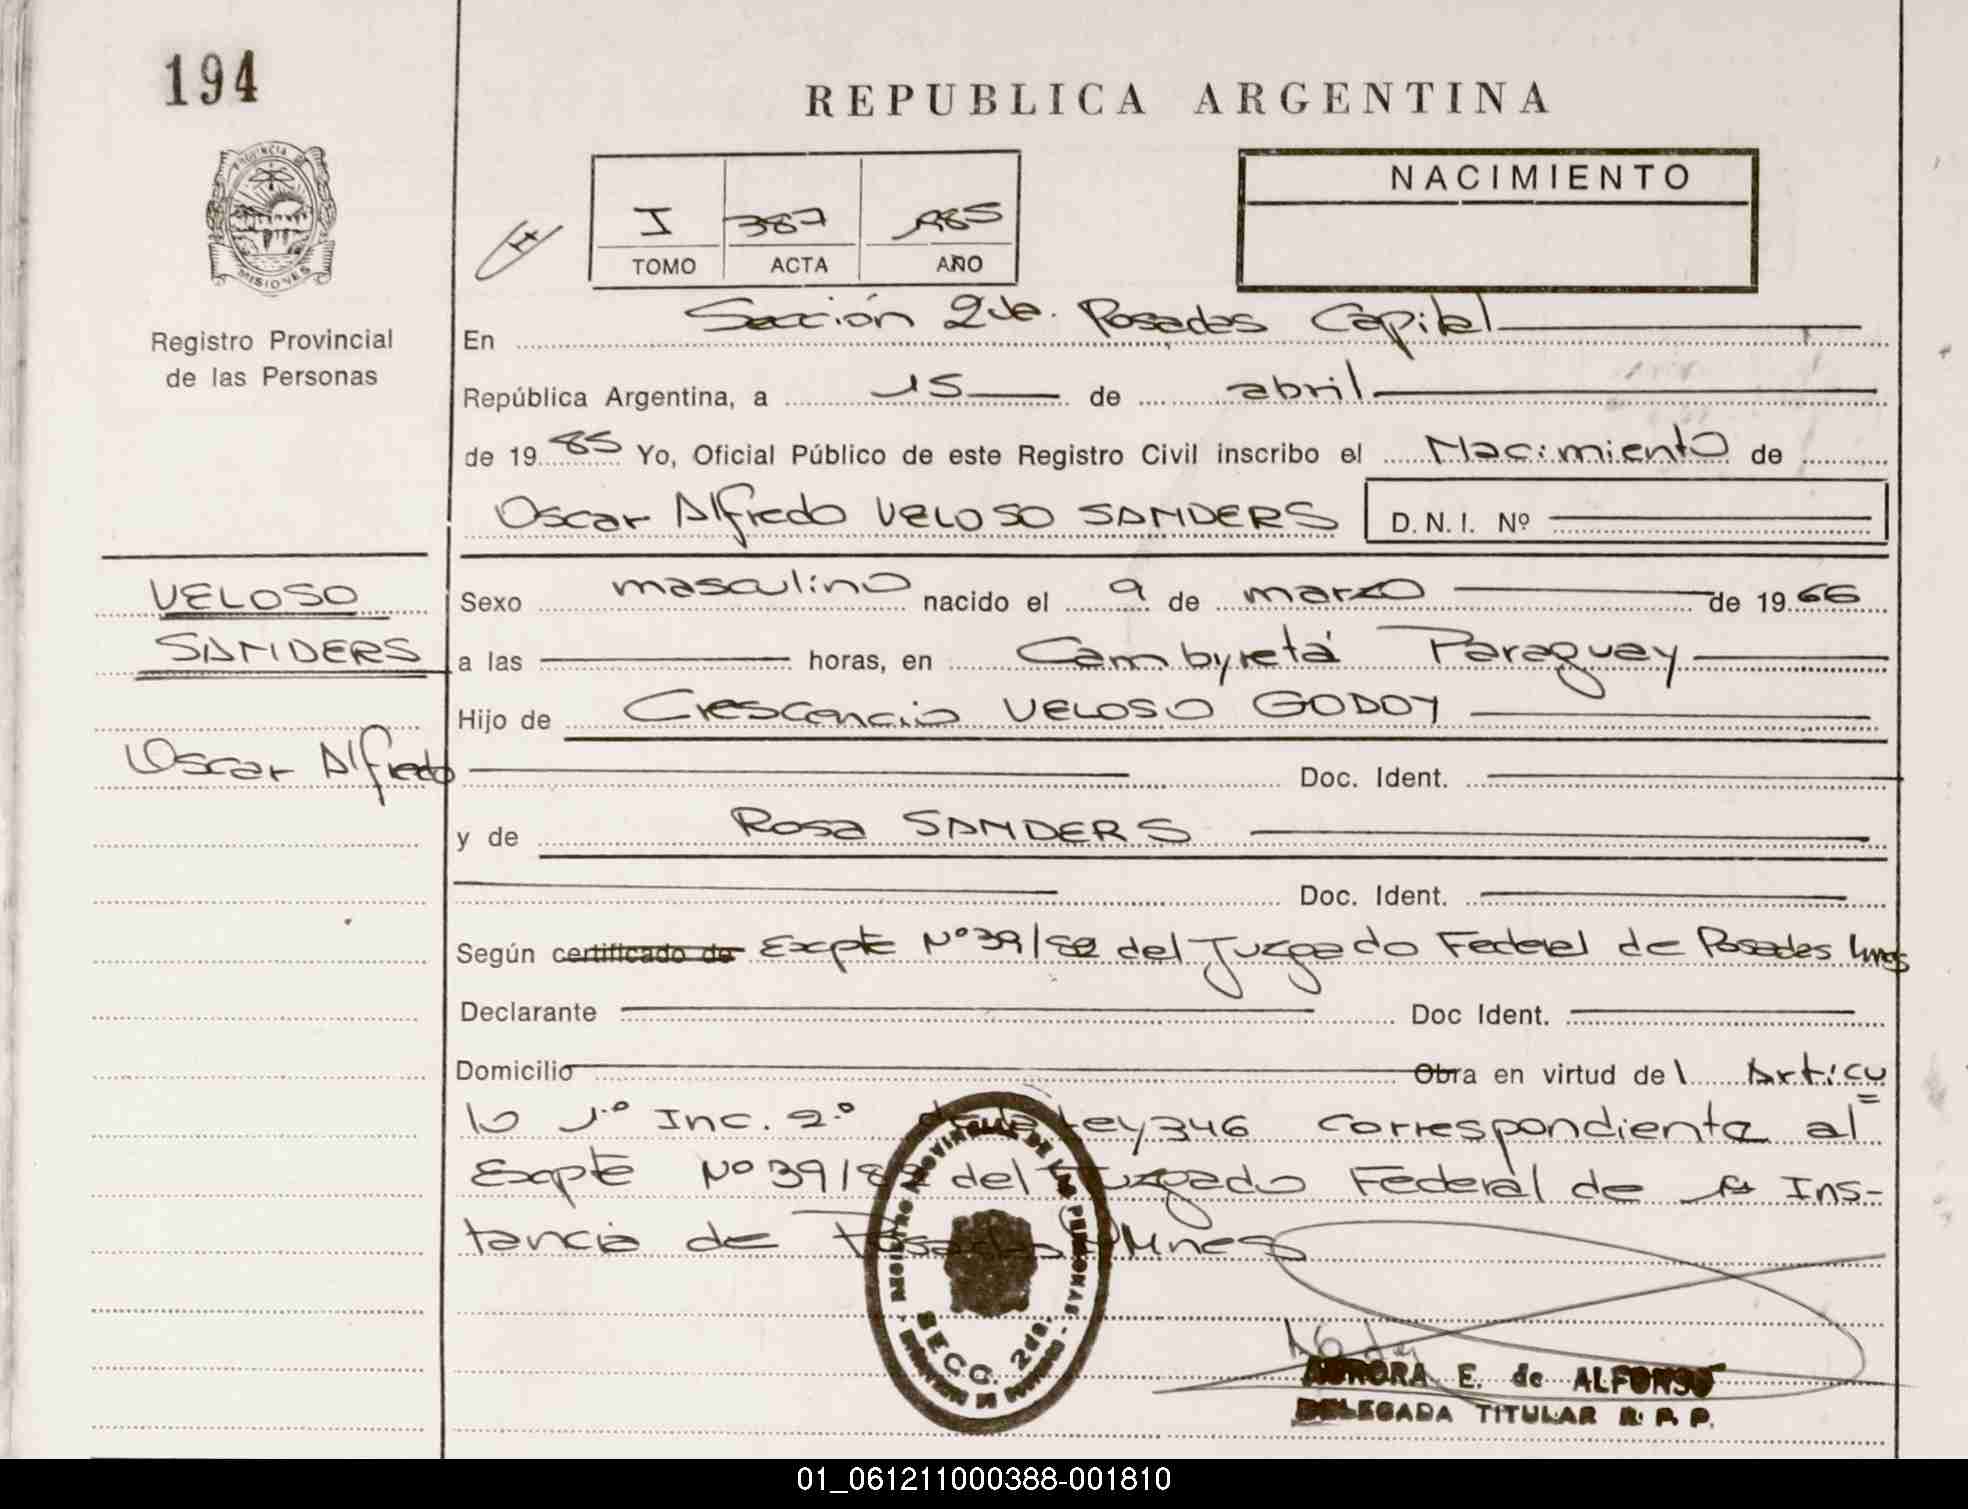 194
REPUBLICA ARGENTINA
PROVINCIA DE
MISIONES
Registro Provincial
de las Personas
I 387 1985
TOMO ACTA AÑO
NACIMIENTO
En Sección 2da. Posadas Capital
República Argentina, a 15 de abril
de 1985 Yo, Oficial Público de este Registro Civil inscribo el Nacimiento de
Oscar Alfredo VELOSO SANDERS D.N.I. Nº
VELOSO
SANDERS
Oscar Alfredo
Sexo masculino nacido el 9 de marzo de 1966
a las horas, en Cambyretá Paraguay
Hijo de Crescencio VELOSO GODOY
Doc. Ident.
y de Rosa SANDERS
Doc. Ident.
Según certificado de Expte Nº 39/82 del Juzgado Federal de Posadas Mnes
Declarante Doc Ident.
Domicilio Obra en virtud del Artícu
lo 1º Inc. 2º de la Ley 346 correspondiente al
Expte Nº 39/82 del Juzgado Federal de 1ª Ins-
tancia de Posadas Mnes
REGISTRO PROVINCIAL DE LAS PERSONAS
SECC. 2da.
AURORA E. de ALFONSO
DELEGADA TITULAR R. P. P.
01_061211000388-001810